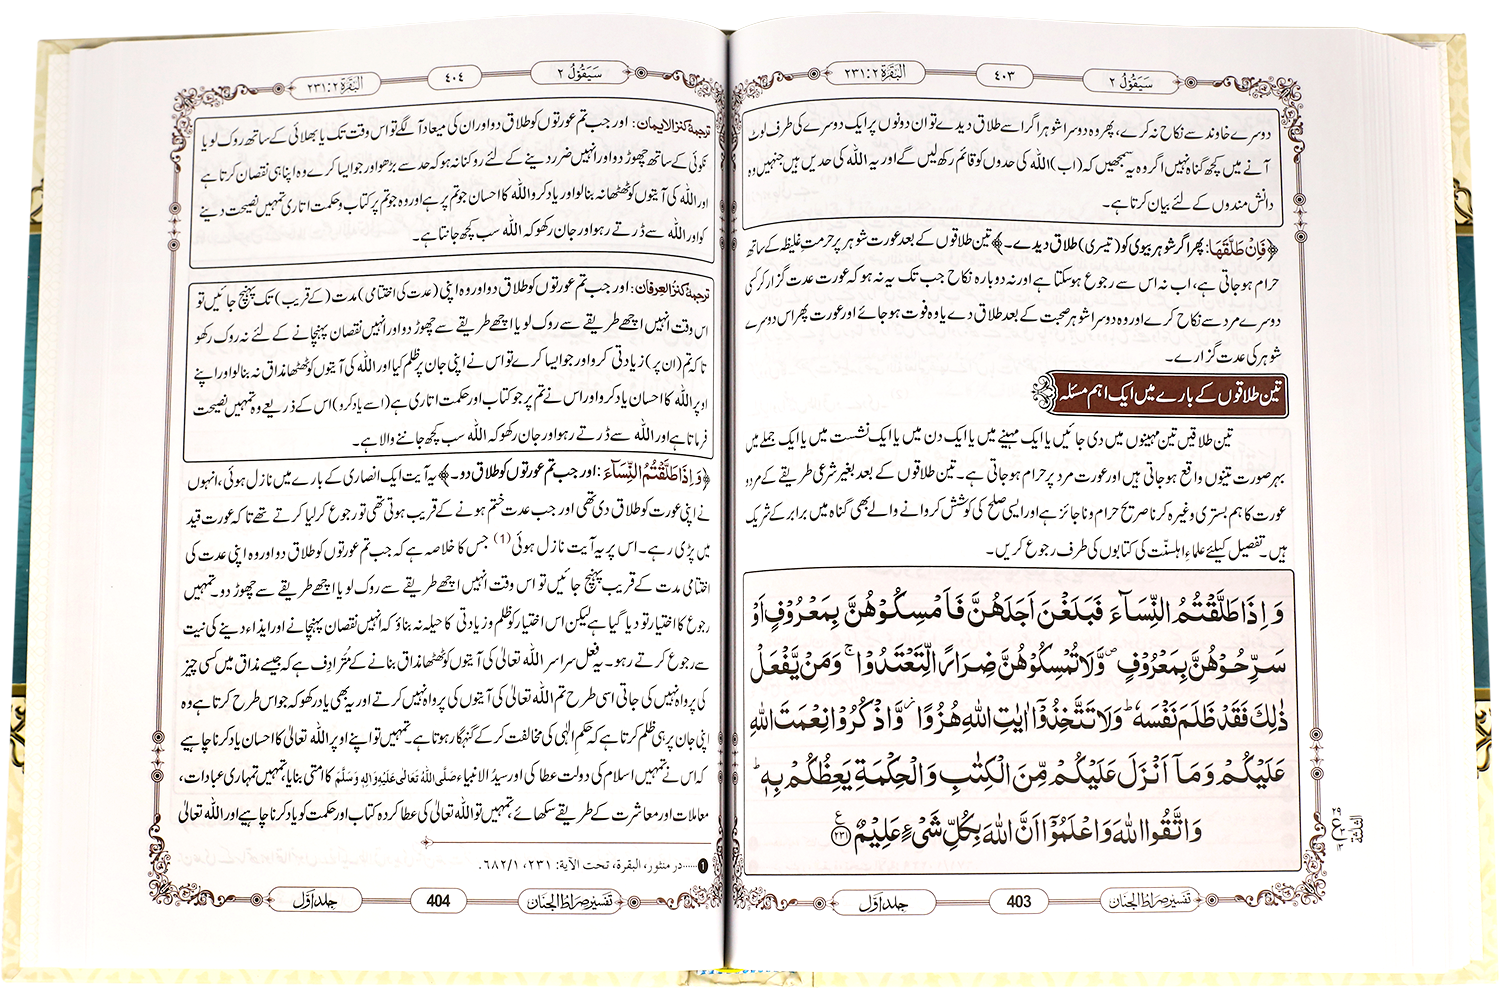 سَیَقُوْلُ ٢
٤٠٣
اَلْبَقَرَة ٢ : ٢٣١
دوسرے خاوند سے نکاح نہ کرے، پھر وہ دوسرا شوہر اگر اسے طلاق دیدے تو ان دونوں پر ایک دوسرے کی طرف لوٹ
آنے میں کچھ گناہ نہیں اگر وہ یہ سمجھیں کہ (اب) اللّٰہ کی حدوں کو قائم رکھ لیں گے اور یہ اللّٰہ کی حدیں ہیں جنہیں وہ
دانش مندوں کے لئے بیان کرتا ہے۔
﴿فَاِنْ طَلَّقَهَا: پھر اگر شوہر بیوی کو (تیسری) طلاق دیدے۔﴾ تین طلاقوں کے بعد عورت شوہر پر حرمتِ غلیظہ کے ساتھ
حرام ہوجاتی ہے، اب نہ اس سے رجوع ہوسکتا ہے اور نہ دوبارہ نکاح جب تک یہ نہ ہو کہ عورت عدت گزار کر کسی
دوسرے مرد سے نکاح کرے اور وہ دوسرا شوہر صحبت کے بعد طلاق دے یا وہ فوت ہوجائے اور عورت پھر اس دوسرے
شوہر کی عدت گزارے۔
تین طلاقوں کے بارے میں ایک اہم مسئلہ
تین طلاقیں تین مہینوں میں دی جائیں یا ایک مہینے میں یا ایک دن میں یا ایک نشست میں یا ایک جملے میں
بہر صورت تینوں واقع ہوجاتی ہیں اور عورت مرد پر حرام ہوجاتی ہے۔ تین طلاقوں کے بعد بغیر شرعی طریقے کے مرد و
عورت کا ہم بستری وغیرہ کرنا صریح حرام و ناجائز ہے اور ایسی صلح کی کوشش کروانے والے بھی گناہ میں برابر کے شریک
ہیں۔ تفصیل کیلئے علماءِ اہلسنّت کی کتابوں کی طرف رجوع کریں۔
وَ اِذَا طَلَّقْتُمُ النِّسَآءَ فَبَلَغْنَ اَجَلَهُنَّ فَاَمْسِكُوْهُنَّ بِمَعْرُوْفٍ اَوْ
سَرِّحُوْهُنَّ بِمَعْرُوْفٍ ۪ وَّ لَا تُمْسِكُوْهُنَّ ضِرَارًا لِّتَعْتَدُوْا ۚ وَ مَنْ یَّفْعَلْ
ذٰلِكَ فَقَدْ ظَلَمَ نَفْسَهٗ ؕ وَ لَا تَتَّخِذُوْۤا اٰیٰتِ اللّٰهِ هُزُوًا ٘ وَّ اذْكُرُوْا نِعْمَتَ اللّٰهِ
عَلَیْكُمْ وَ مَاۤ اَنْزَلَ عَلَیْكُمْ مِّنَ الْكِتٰبِ وَ الْحِكْمَةِ یَعِظُكُمْ بِهٖ ؕ
وَ اتَّقُوا اللّٰهَ وَ اعْلَمُوْۤا اَنَّ اللّٰهَ بِكُلِّ شَیْءٍ عَلِیْمٌ ﴿٢٣١﴾
تفسیر صراط الجنان
403
جلد اوّل
سَیَقُوْلُ ٢
٤٠٤
اَلْبَقَرَة ٢ : ٢٣١
ترجمۂ کنزالایمان: اور جب تم عورتوں کو طلاق دو اور ان کی میعاد آ لگے تو اس وقت تک یا بھلائی کے ساتھ روک لو یا
نکوئی کے ساتھ چھوڑ دو اور انہیں ضرر دینے کے لئے روکنا نہ ہو کہ حد سے بڑھو اور جو ایسا کرے وہ اپنا ہی نقصان کرتا ہے
اور اللّٰہ کی آیتوں کو ٹھٹھا نہ بنالو اور یاد کرو اللّٰہ کا احسان جو تم پر ہے اور وہ جو تم پر کتاب و حکمت اتاری تمہیں نصیحت دینے
کو اور اللّٰہ سے ڈرتے رہو اور جان رکھو کہ اللّٰہ سب کچھ جانتا ہے۔
ترجمۂ کنزُالعِرفان: اور جب تم عورتوں کو طلاق دو اور وہ اپنی (عدت کی اختتامی) مدت (کے قریب) تک پہنچ جائیں تو
اس وقت انہیں اچھے طریقے سے روک لو یا اچھے طریقے سے چھوڑ دو اور انہیں نقصان پہنچانے کے لئے نہ روک رکھو
تاکہ تم (ان پر) زیادتی کرو اور جو ایسا کرے تو اس نے اپنی جان پر ظلم کیا اور اللّٰہ کی آیتوں کو ٹھٹھا مذاق نہ بنالو اور اپنے
اوپر اللّٰہ کا احسان یاد کرو اور اس نے تم پر جو کتاب اور حکمت اتاری ہے (اسے یاد کرو) اس کے ذریعے وہ تمہیں نصیحت
فرماتا ہے اور اللّٰہ سے ڈرتے رہو اور جان رکھو کہ اللّٰہ سب کچھ جاننے والا ہے۔
﴿وَ اِذَا طَلَّقْتُمُ النِّسَآءَ: اور جب تم عورتوں کو طلاق دو۔﴾ یہ آیت ایک انصاری کے بارے میں نازل ہوئی، انہوں
نے اپنی عورت کو طلاق دی تھی اور جب عدت ختم ہونے کے قریب ہوتی تھی تو رجوع کرلیا کرتے تھے تاکہ عورت قید
میں پڑی رہے۔ اس پر یہ آیت نازل ہوئی(1) جس کا خلاصہ ہے کہ جب تم عورتوں کو طلاق دو اور وہ اپنی عدت کی
اختتامی مدت کے قریب پہنچ جائیں تو اس وقت انہیں اچھے طریقے سے روک لو یا اچھے طریقے سے چھوڑ دو۔ تمہیں
رجوع کا اختیار تو دیا گیا ہے لیکن اس اختیار کو ظلم و زیادتی کا حیلہ نہ بناؤ کہ انہیں نقصان پہنچانے اور ایذاء دینے کی نیت
سے رجوع کرتے رہو۔ یہ فعل سراسر اللّٰہ تعالیٰ کی آیتوں کو ٹھٹھا مذاق بنانے کے مُترادِف ہے کہ جیسے مذاق میں کسی چیز
کی پرواہ نہیں کی جاتی اسی طرح تم اللّٰہ تعالیٰ کی آیتوں کی پرواہ نہیں کرتے اور یہ بھی یاد رکھو کہ جو اس طرح کرتا ہے وہ
اپنی جان پر ہی ظلم کرتا ہے کہ حکمِ الٰہی کی مخالفت کر کے گنہگار ہوتا ہے۔ تمہیں تو اپنے اوپر اللّٰہ تعالیٰ کا احسان یاد کرنا چاہیے
کہ اس نے تمہیں اسلام کی دولت عطا کی اور سیدُ الانبیاء صَلَّی اللّٰہُ تَعَالٰی عَلَیْہِ وَاٰلِہٖ وَسَلَّمَ کا امتی بنایا، تمہیں تمہاری عبادات،
معاملات اور معاشرت کے طریقے سکھائے، تمہیں تو اللّٰہ تعالیٰ کی عطا کردہ کتاب اور حکمت کو یاد کرنا چاہیے اور اللّٰہ تعالیٰ
1 .....در منثور، البقرۃ، تحت الآیۃ: ٢٣١، ٦٨٢/١.
تفسیر صراط الجنان
404
جلد اوّل